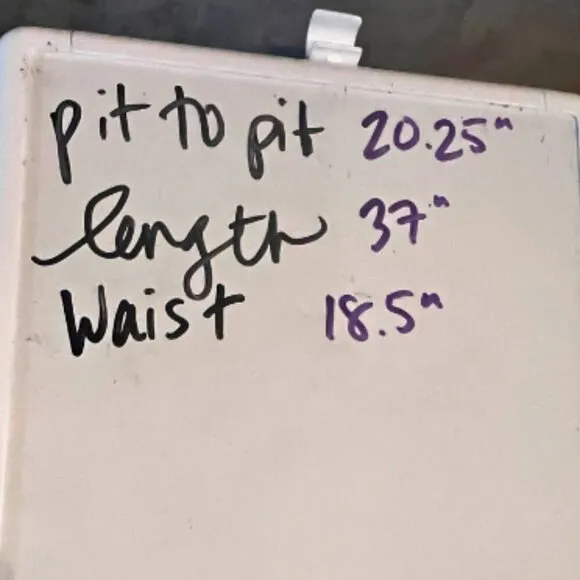 pit to pit 20.25"
length 37"
Waist 18.5"